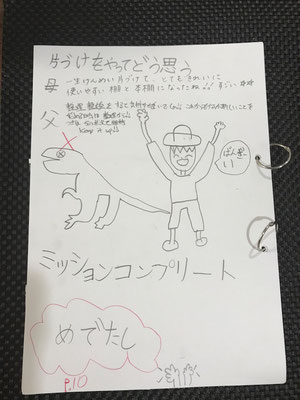 片づけをやってどう思う
母 一生けんめい片づけて、とてもきれいに
使いやすい棚と本棚になったね!! すごい
父 整理整頓をすると気持ちが
Keep it up!!
ばんざい
ミッションコンプリート
めでたし
P.10